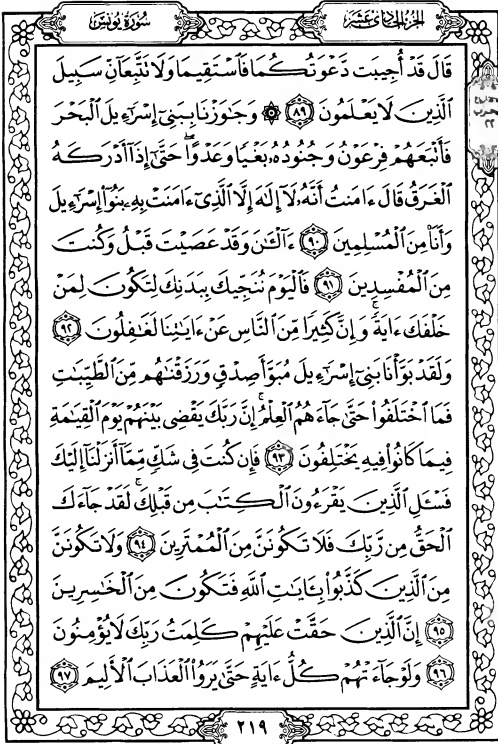 الجزء الحادي عشر
سورة يونس
قَالَ قَدْ أُجِيبَت دَّعْوَتُكُمَا فَٱسْتَقِيمَا وَلَا تَتَّبِعَآنِّ سَبِيلَ
ٱلَّذِينَ لَا يَعْلَمُونَ ٨٩ ۞ وَجَٰوَزْنَا بِبَنِىٓ إِسْرَٰٓءِيلَ ٱلْبَحْرَ
فَأَتْبَعَهُمْ فِرْعَوْنُ وَجُنُودُهُۥ بَغْيًا وَعَدْوًا ۖ حَتَّىٰٓ إِذَآ أَدْرَكَهُ
ٱلْغَرَقُ قَالَ ءَامَنتُ أَنَّهُۥ لَآ إِلَٰهَ إِلَّا ٱلَّذِىٓ ءَامَنَتْ بِهِۦ بَنُوٓا۟ إِسْرَٰٓءِيلَ
وَأَنَا۠ مِنَ ٱلْمُسْلِمِينَ ٩٠ ءَآلْـَٰٔنَ وَقَدْ عَصَيْتَ قَبْلُ وَكُنتَ
مِنَ ٱلْمُفْسِدِينَ ٩١ فَٱلْيَوْمَ نُنَجِّيكَ بِبَدَنِكَ لِتَكُونَ لِمَنْ
خَلْفَكَ ءَايَةً ۚ وَإِنَّ كَثِيرًا مِّنَ ٱلنَّاسِ عَنْ ءَايَٰتِنَا لَغَٰفِلُونَ ٩٢
وَلَقَدْ بَوَّأْنَا بَنِىٓ إِسْرَٰٓءِيلَ مُبَوَّأَ صِدْقٍ وَرَزَقْنَٰهُم مِّنَ ٱلطَّيِّبَٰتِ
فَمَا ٱخْتَلَفُوا۟ حَتَّىٰ جَآءَهُمُ ٱلْعِلْمُ ۚ إِنَّ رَبَّكَ يَقْضِى بَيْنَهُمْ يَوْمَ ٱلْقِيَٰمَةِ
فِيمَا كَانُوا۟ فِيهِ يَخْتَلِفُونَ ٩٣ فَإِن كُنتَ فِى شَكٍّ مِّمَّآ أَنزَلْنَآ إِلَيْكَ
فَسْـَٔلِ ٱلَّذِينَ يَقْرَءُونَ ٱلْكِتَٰبَ مِن قَبْلِكَ ۚ لَقَدْ جَآءَكَ
ٱلْحَقُّ مِن رَّبِّكَ فَلَا تَكُونَنَّ مِنَ ٱلْمُمْتَرِينَ ٩٤ وَلَا تَكُونَنَّ
مِنَ ٱلَّذِينَ كَذَّبُوا۟ بِـَٔايَٰتِ ٱللَّهِ فَتَكُونَ مِنَ ٱلْخَٰسِرِينَ
٩٥ إِنَّ ٱلَّذِينَ حَقَّتْ عَلَيْهِمْ كَلِمَتُ رَبِّكَ لَا يُؤْمِنُونَ
٩٦ وَلَوْ جَآءَتْهُمْ كُلُّ ءَايَةٍ حَتَّىٰ يَرَوُا۟ ٱلْعَذَابَ ٱلْأَلِيمَ ٩٧
٢١٩